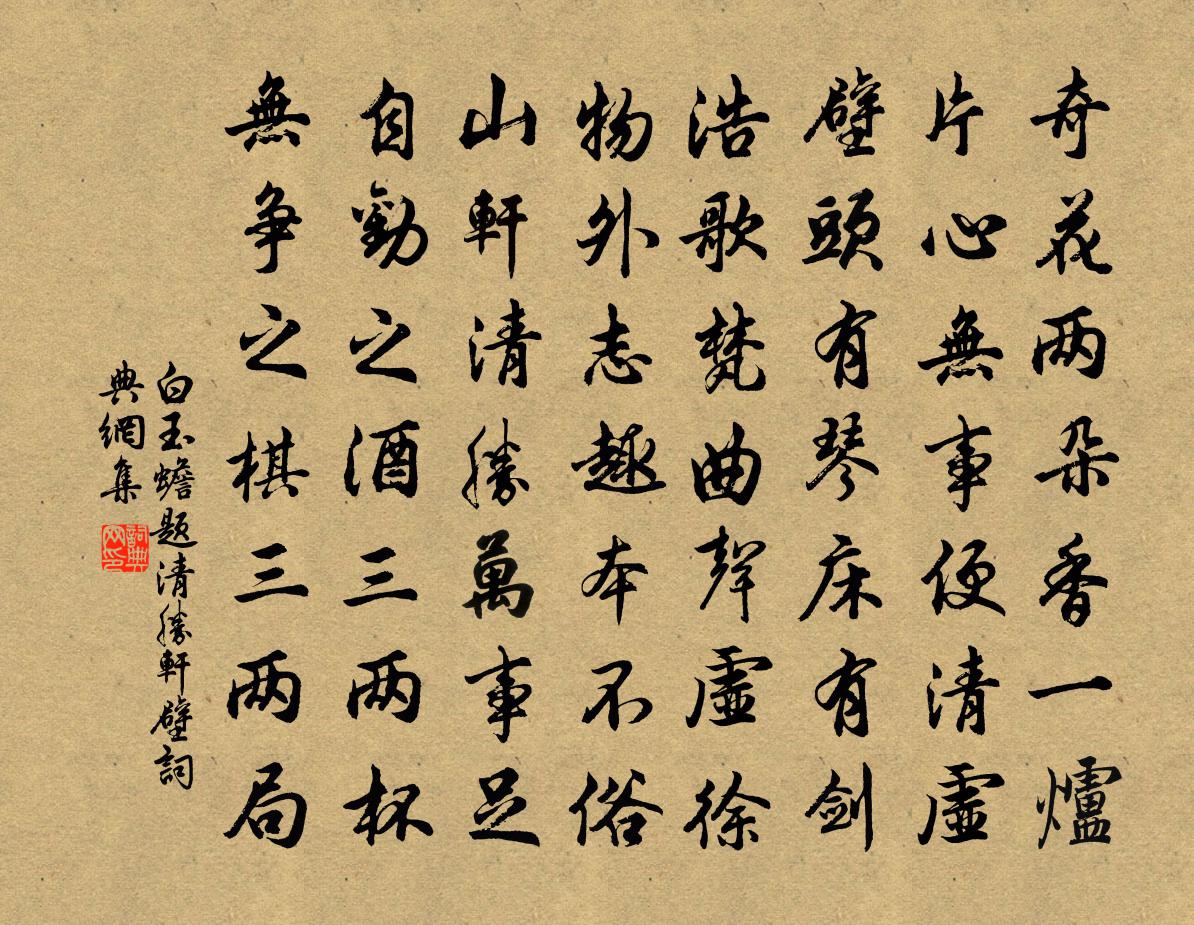 奇花两朵香一爐
片心無事便清虛
壁頭有琴床有剑
浩歌梵曲聲虛徐
物外志趣本不俗
山軒清勝萬事足
自勸之酒三两杯
無争之棋三两局
白玉蟾题清勝軒壁詞
典網集
詞典网印